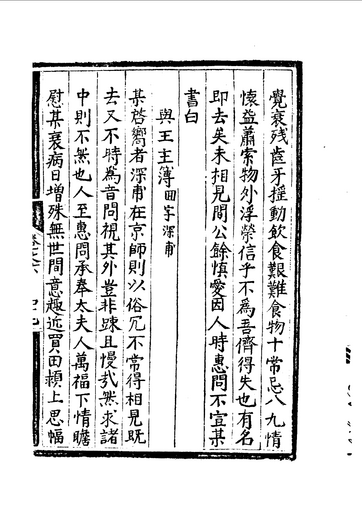 覺衰殘齒牙揺動飲食艱難食物十常忌八九情
懷益蕭索物外浮榮信乎不為吾儕得失也有名
即去矣未相見間公餘慎愛因人時惠問不宣某
書白
與王主簿回字深甫
某啓嚮者深甫在京師則以俗冗不常得相見既
去又不時為音問視其外豈非踈且慢㢤然求諸
中則不無也人至惠問承奉太夫人萬福下情瞻
慰某衰病日增殊無世間意趣近買田潁上思幅